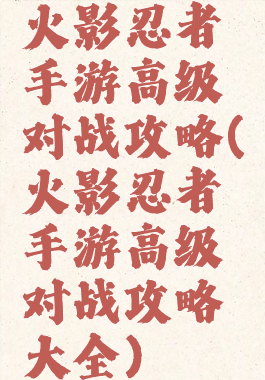 火影忍者
手游高级
对战攻略(
火影忍者
手游高级
对战攻略
大全)